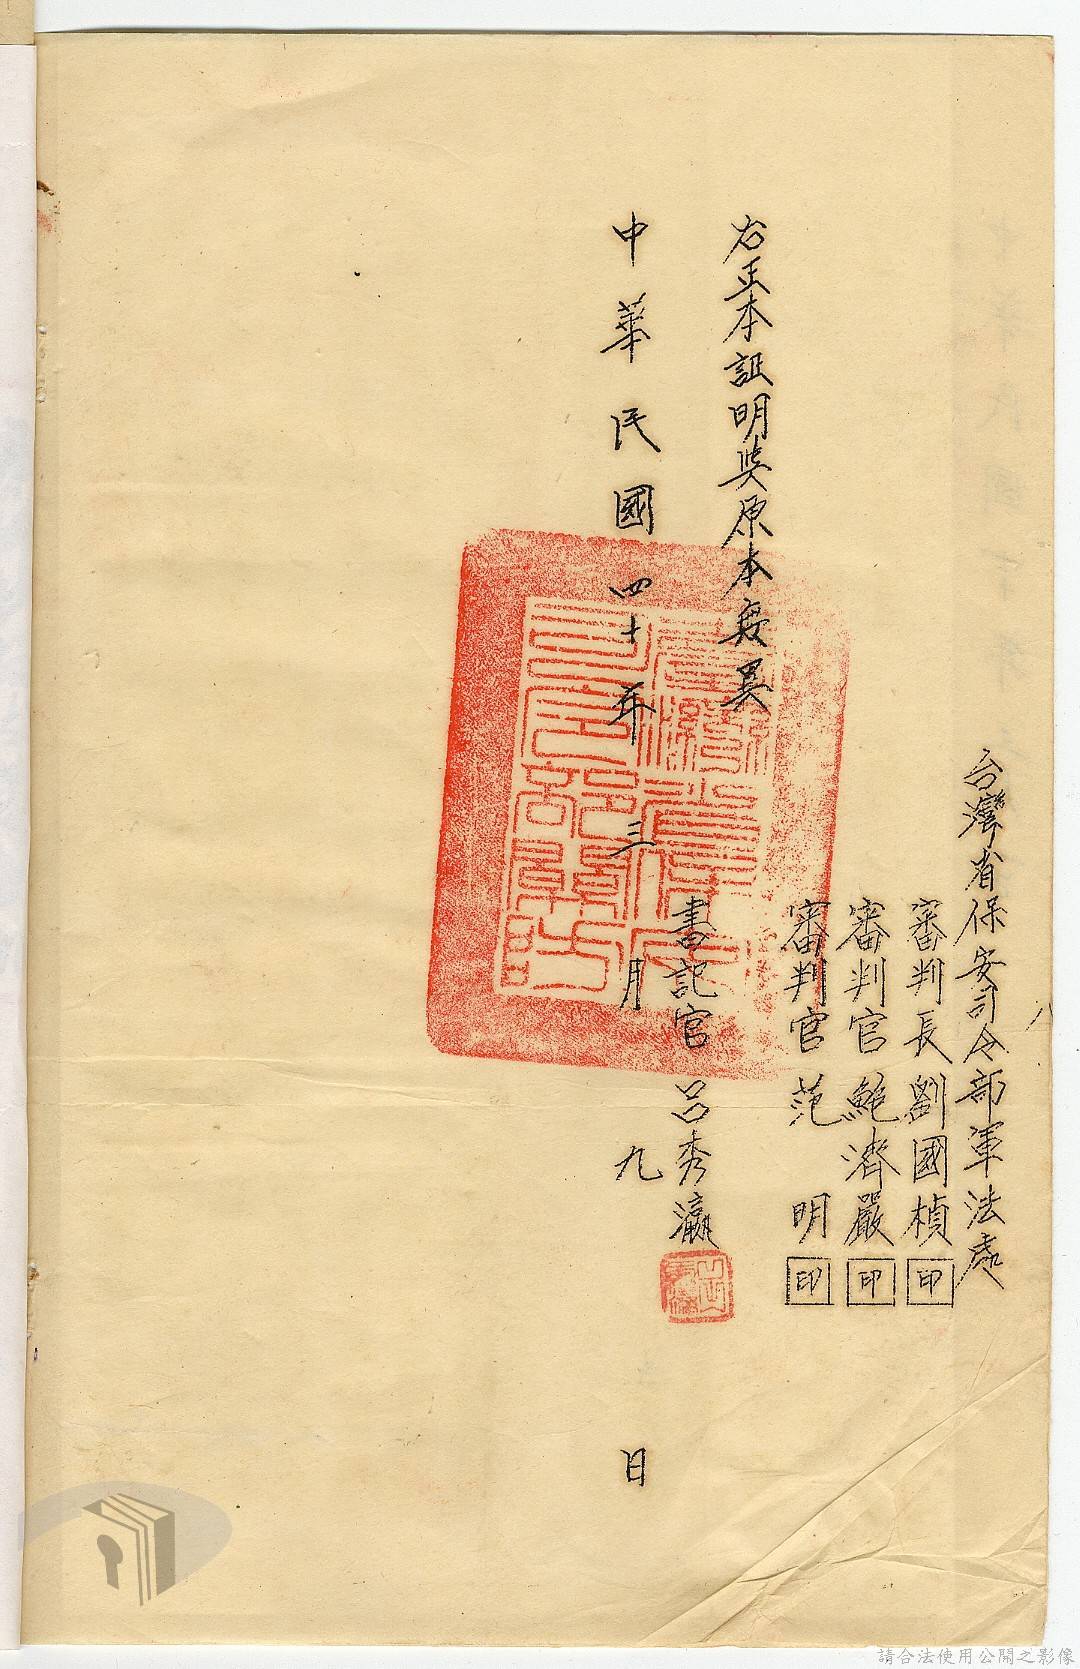 台灣省保安司令部軍法處
審判長劉國楨印
審判官鮑濟嚴印
審判官范明印
右正本証明與原本無異
書記官呂秀瀛
中華民國四十年三月九日
請合法使用公開之影像